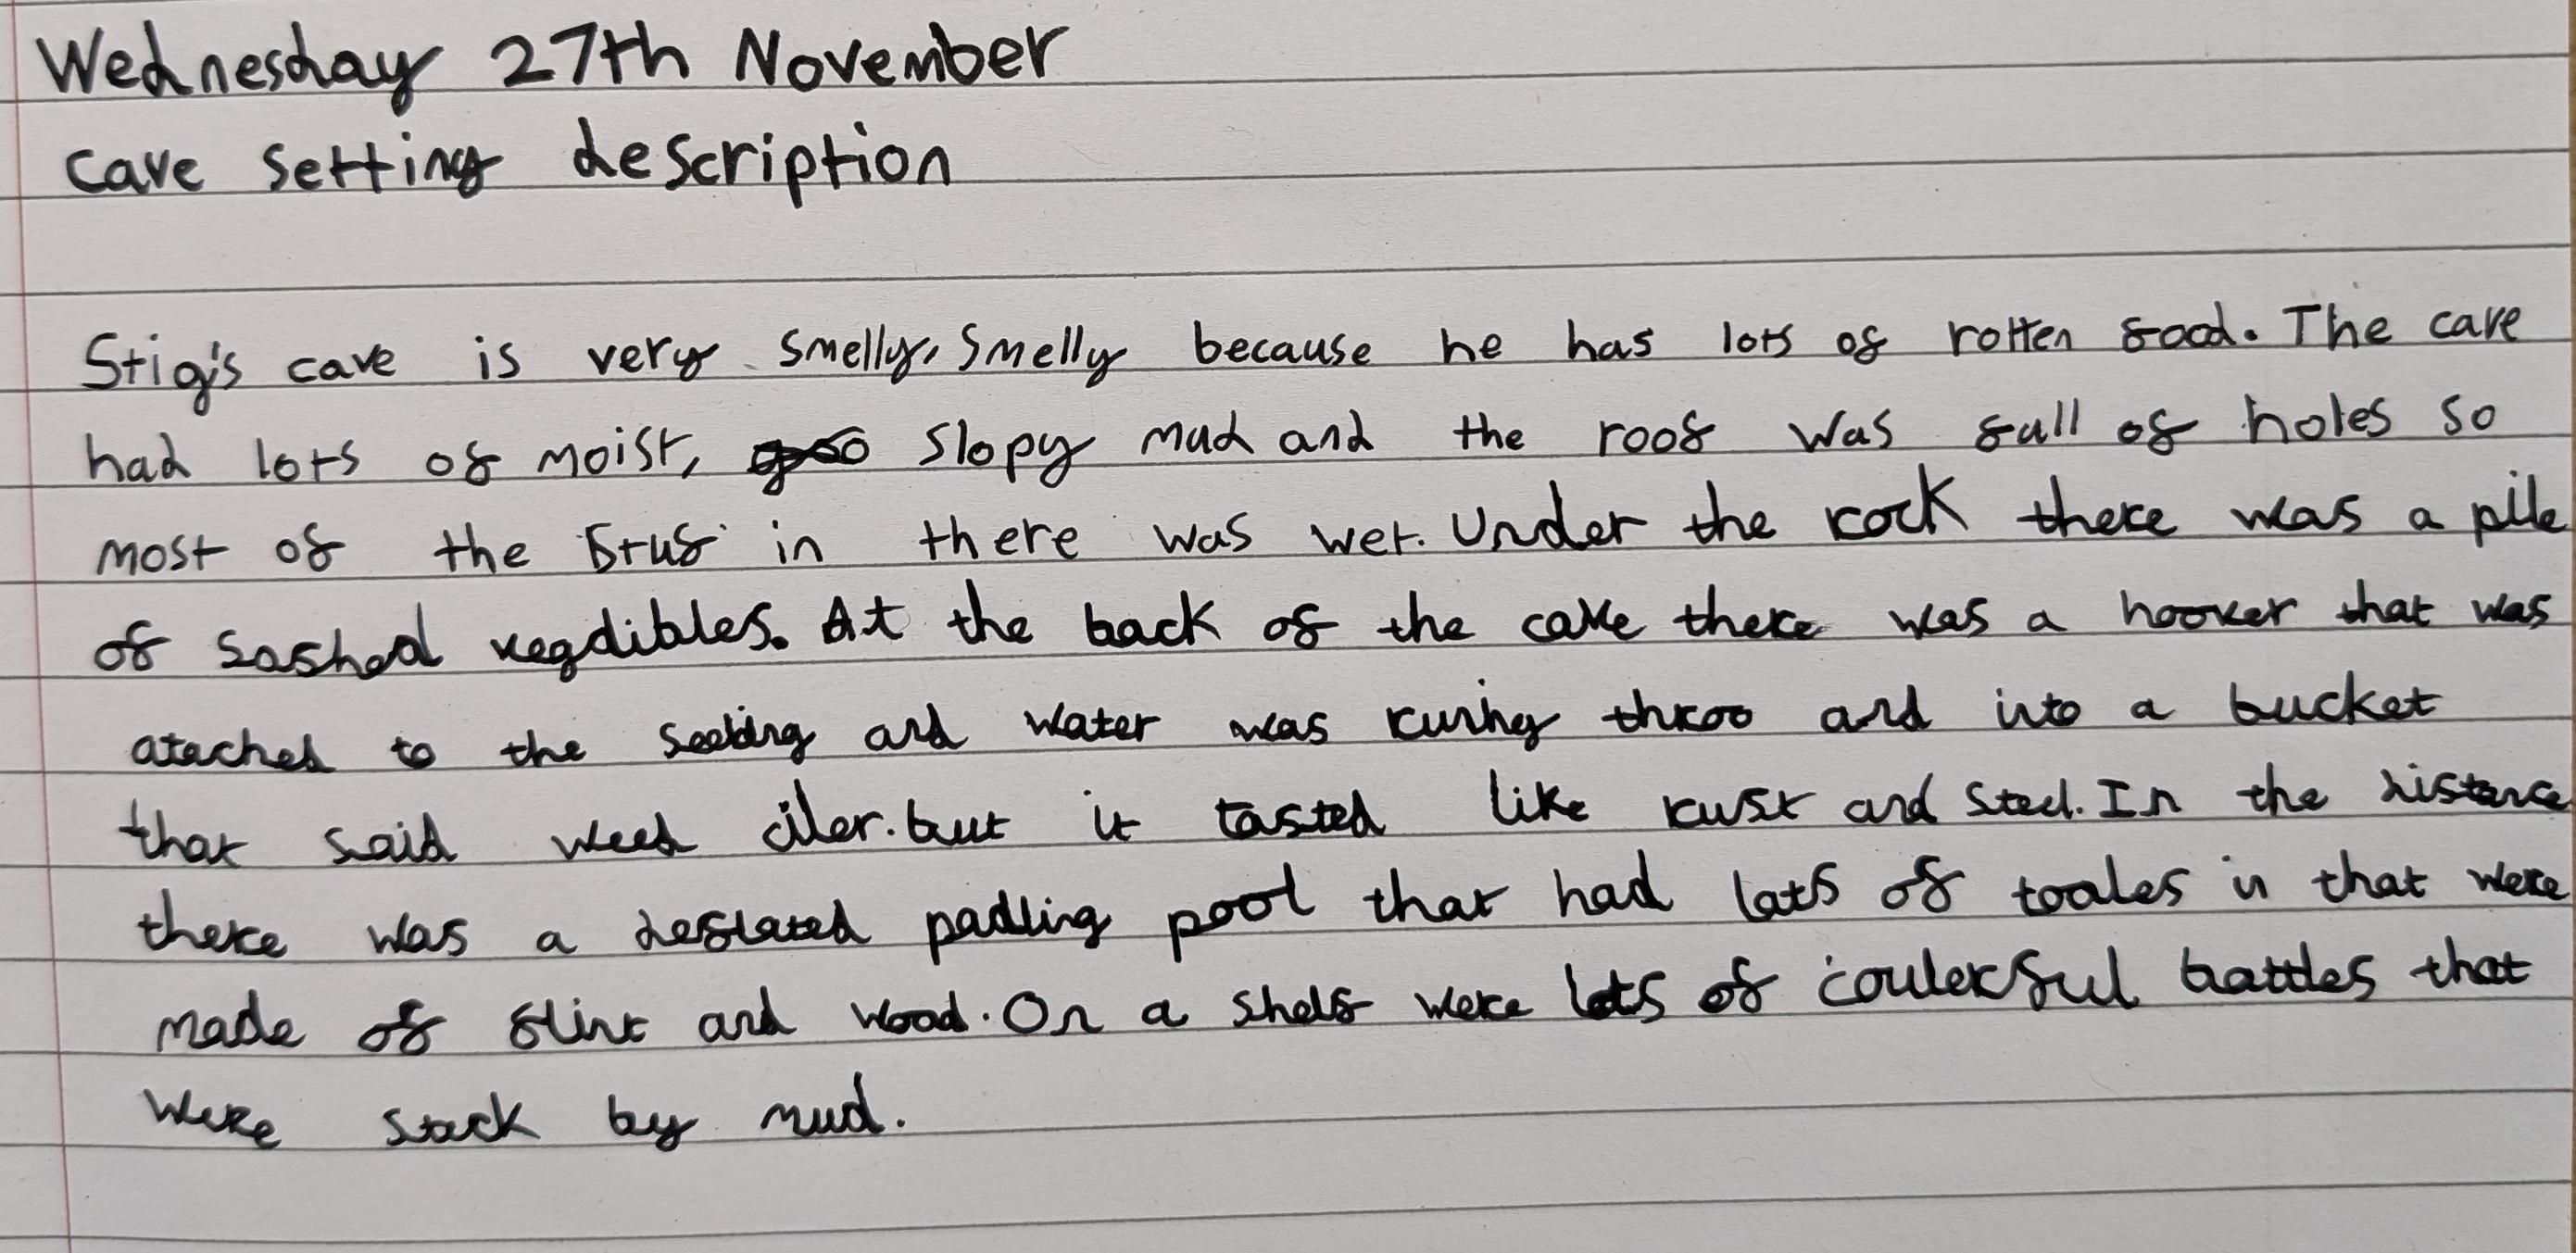 Wednesday 27th November
cave setting description
Stig's cave is very smelly, smelly because he has lots of rotten food. The cave
had lots of moist, slopy mud and the roof was full of holes so
most of the stuf in there was wet. Under the rock there was a pile
of sashed vegdibles. At the back of the cave there was a hoover that was
atached to the seeling and water was runing throo and into a bucket
that said weed ciler. but it tasted like rust and steel. In the distance
there was a deflated padling pool that had lots of toales in that were
made of flint and wood. On a shelf were lots of coulerful bottles that
were stuck by mud.